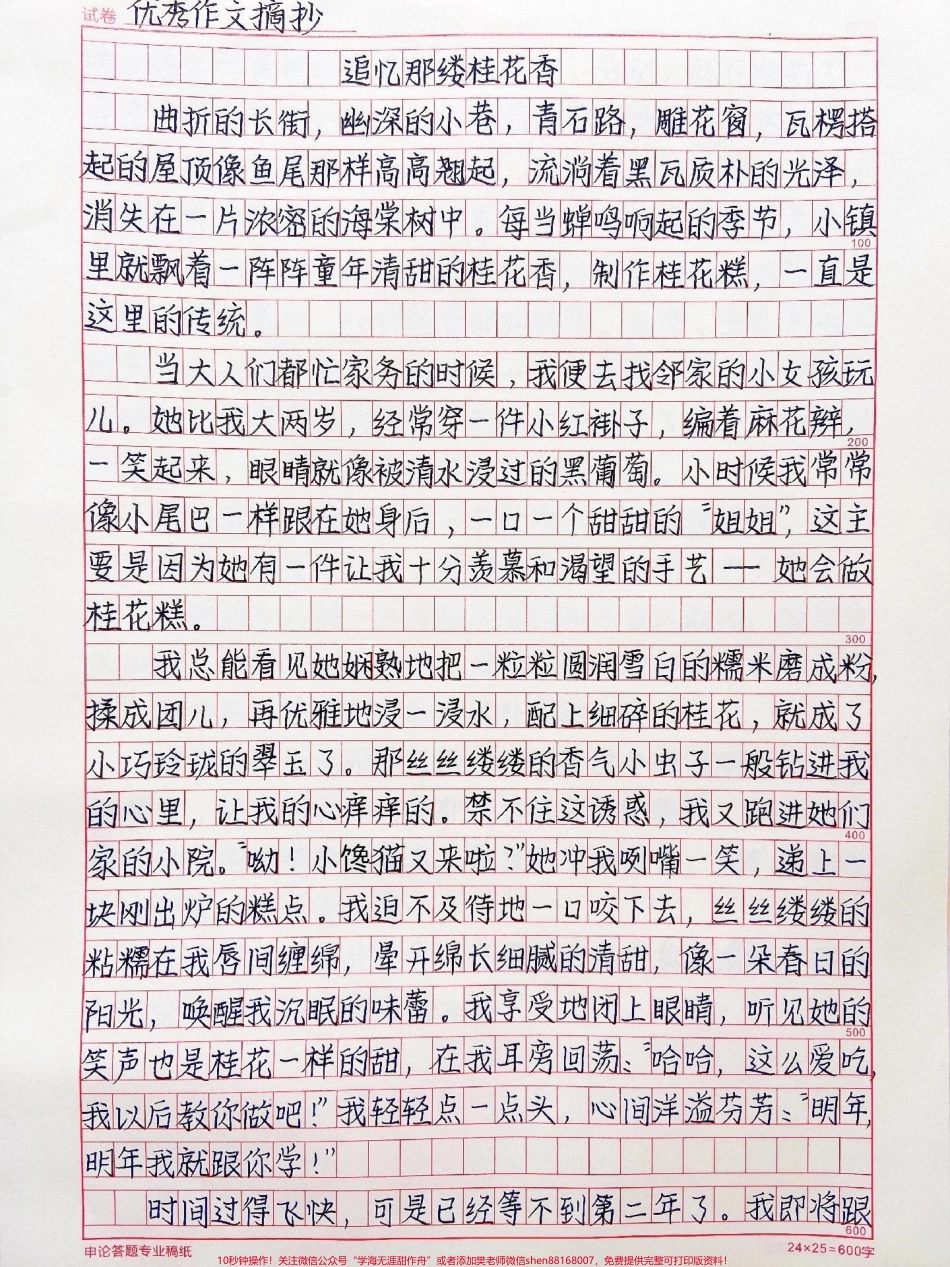 试卷 优秀作文摘抄
追忆那缕桂花香
曲折的长街，幽深的小巷，青石路，雕花窗，瓦楞搭
起的屋顶像鱼尾那样高高翘起，流淌着黑瓦质朴的光泽，
消失在一片浓密的海棠树中。每当蝉鸣响起的季节，小镇
100
里就飘着一阵阵童年清甜的桂花香，制作桂花糕，一直是
这里的传统。
当大人们都忙家务的时候，我便去找邻家的小女孩玩
儿。她比我大两岁，经常穿一件小红褂子，编着麻花辫，
200
一笑起来，眼睛就像被清水浸过的黑葡萄。小时候我常常
像小尾巴一样跟在她身后，一口一个甜甜的“姐姐”，这主
要是因为她有一件让我十分羡慕和渴望的手艺——她会做
桂花糕。
300
我总能看见她娴熟地把一粒粒圆润雪白的糯米磨成粉，
揉成团儿，再优雅地浸一浸水，配上细碎的桂花，就成了
小巧玲珑的翠玉了。那丝丝缕缕的香气小虫子一般钻进我
的心里，让我的心痒痒的。禁不住这诱惑，我又跑进她们
400
家的小院。“呦！小馋猫又来啦？”她冲我咧嘴一笑，递上一
块刚出炉的糕点。我迫不及待地一口咬下去，丝丝缕缕的
粘糯在我唇间缠绵，晕开绵长细腻的清甜，像一朵春日的
阳光，唤醒我沉眠的味蕾。我享受地闭上眼睛，听见她的
500
笑声也是桂花一样的甜，在我耳旁回荡：“哈哈，这么爱吃，
我以后教你做吧！”我轻轻点一点头，心间洋溢芬芳：“明年，
明年我就跟你学！”
时间过得飞快，可是已经等不到第二年了。我即将跟
600
申论答题专业稿纸 24×25=600字
10秒钟操作！关注微信公众号“学海无涯甜作舟”或者添加樊老师微信shen88168007，免费提供完整可打印版资料！